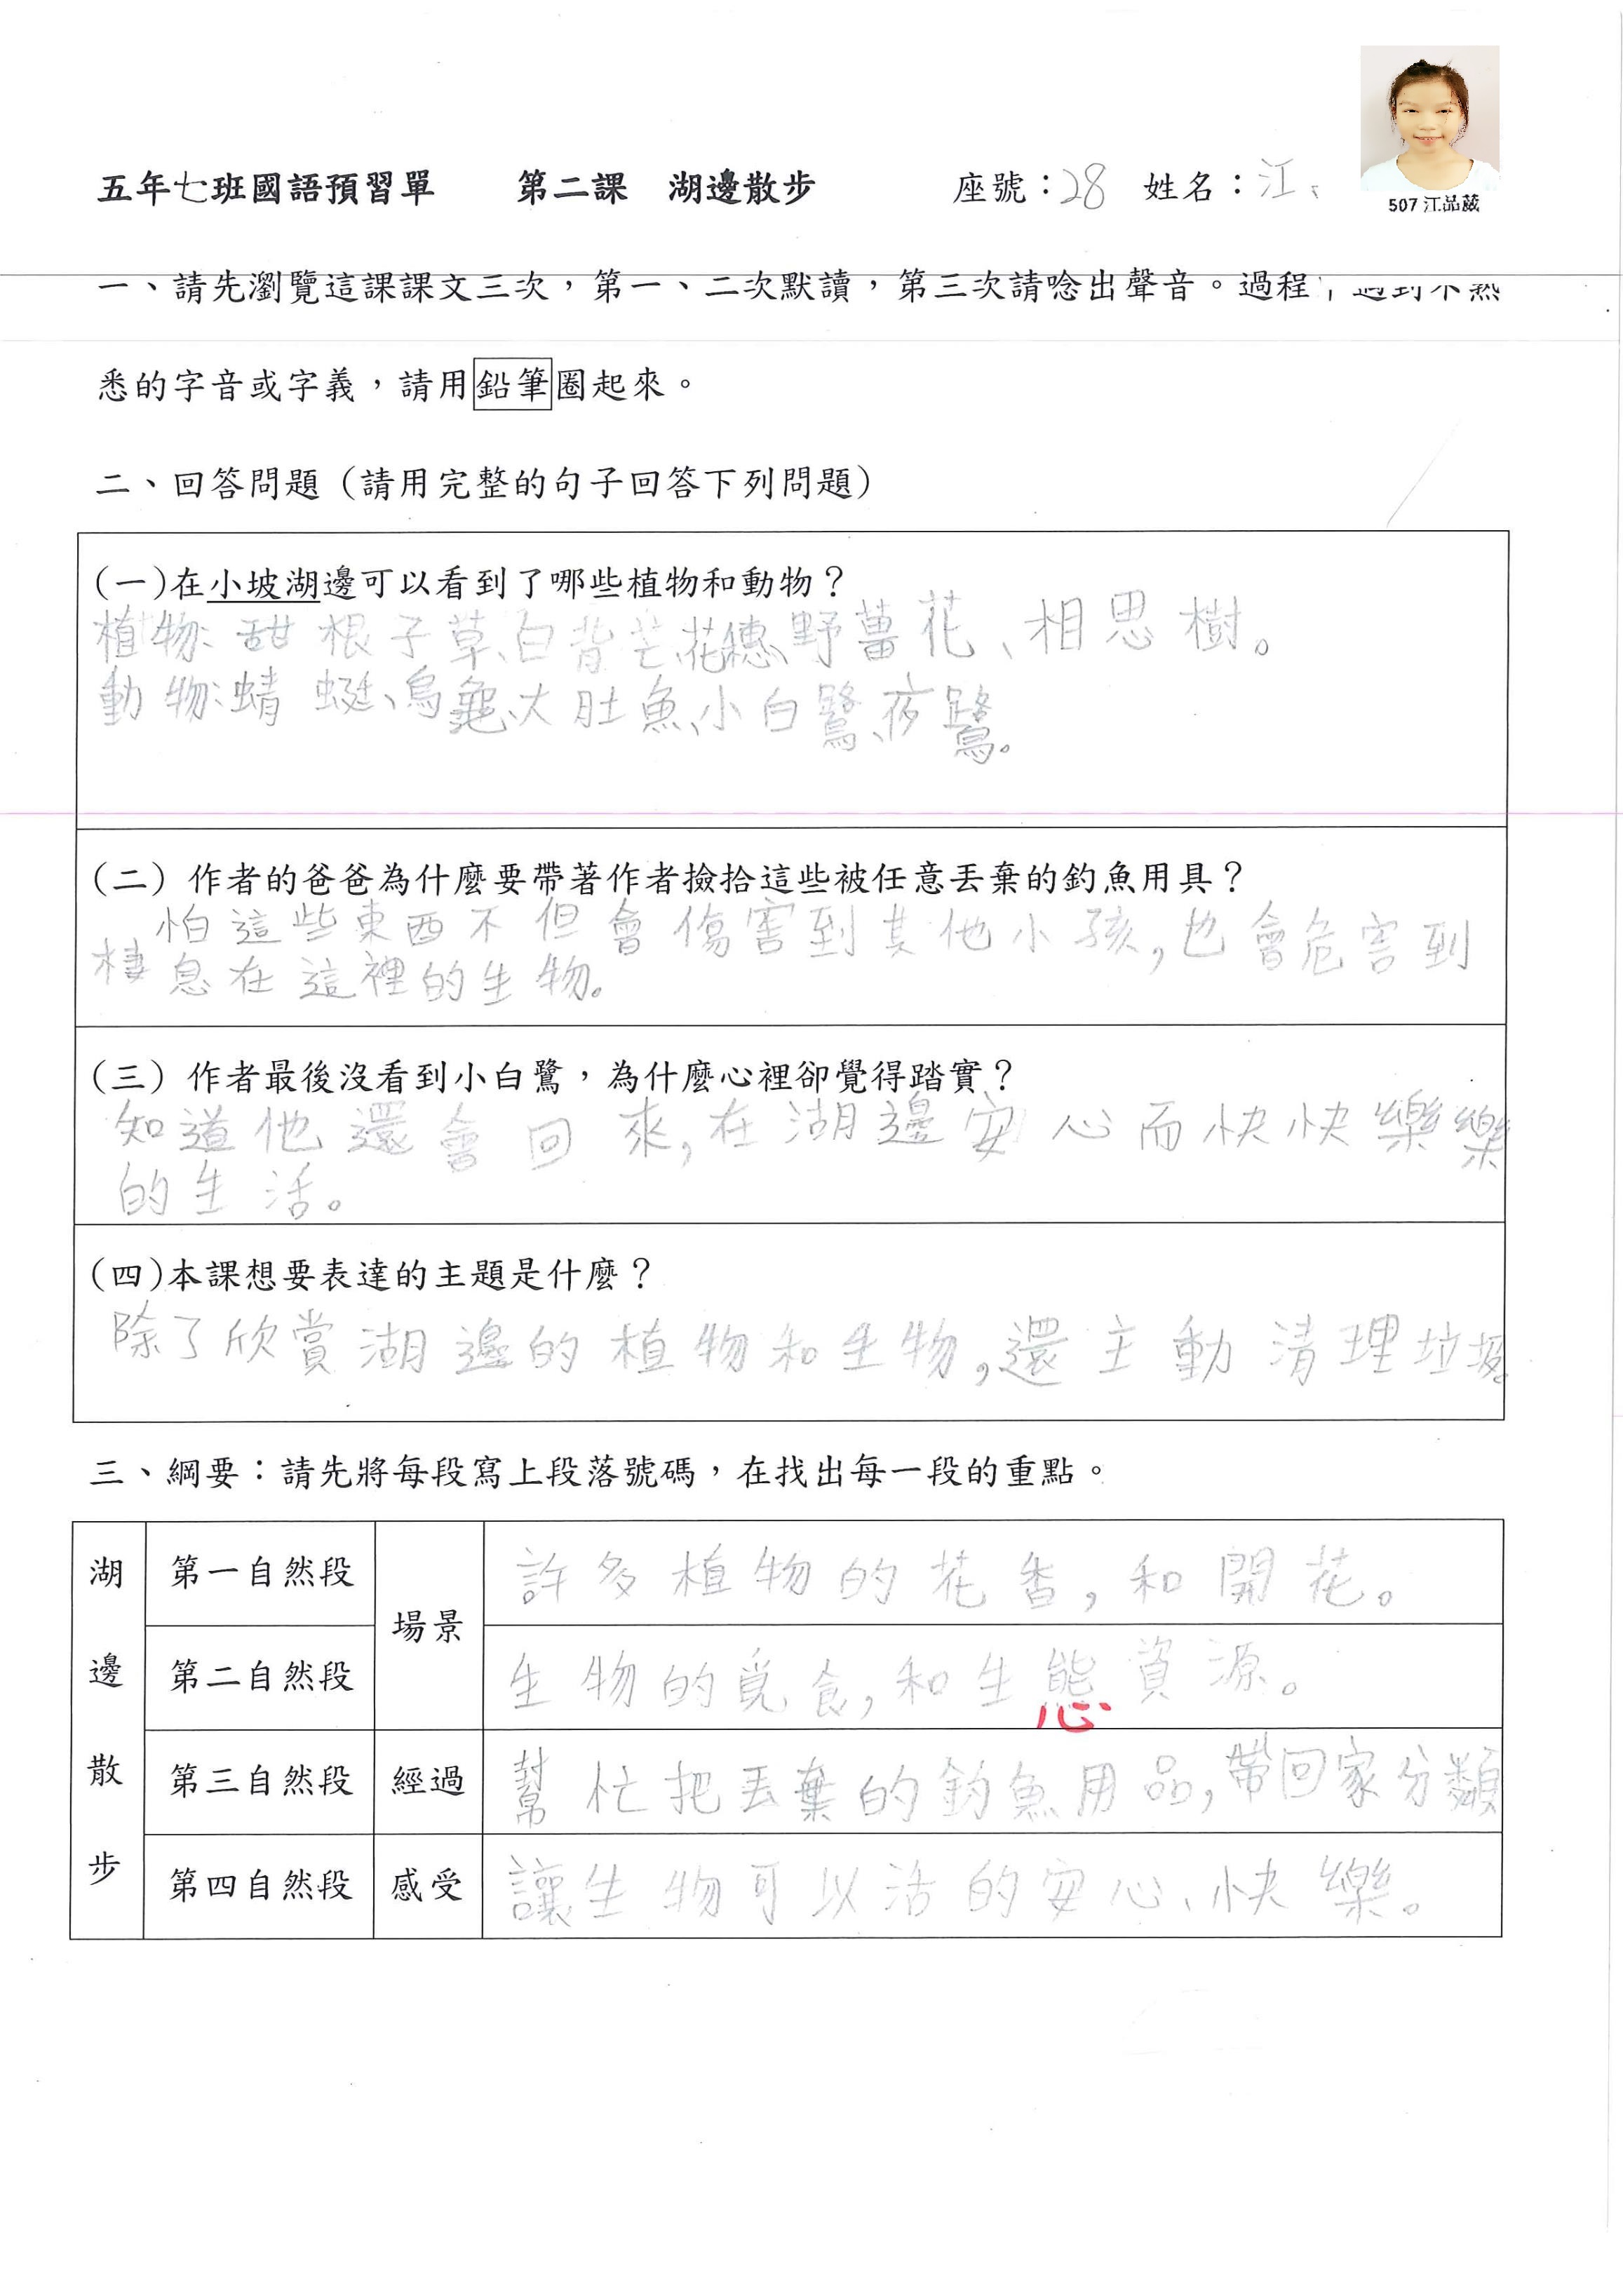 五年七班國語預習單 第二課 湖邊散步 座號：28 姓名：江
507 江品葳
一、請先瀏覽這課課文三次，第一、二次默讀，第三次請唸出聲音。過程
悉的字音或字義，請用鉛筆圈起來。
二、回答問題（請用完整的句子回答下列問題）
(一)在小坡湖邊可以看到了哪些植物和動物？
植物：甜根子草、白背芒、花穗、野薑花、相思樹。
動物：蜻蜓、烏龜、大肚魚、小白鷺、夜鷺。
(二) 作者的爸爸為什麼要帶著作者撿拾這些被任意丟棄的釣魚用具？
怕這些東西不但會傷害到其他小孩，也會危害到
棲息在這裡的生物。
(三) 作者最後沒看到小白鷺，為什麼心裡卻覺得踏實？
知道他還會回來，在湖邊安心而快快樂樂
的生活。
(四)本課想要表達的主題是什麼？
除了欣賞湖邊的植物和生物，還主動清理垃圾。
三、綱要：請先將每段寫上段落號碼，在找出每一段的重點。
湖邊散步
第一自然段 場景 許多植物的花香，和開花。
第二自然段 生物的覓食，和生態資源。
心
第三自然段 經過 幫忙把丟棄的釣魚用品，帶回家分類
第四自然段 感受 讓生物可以活的安心、快樂。